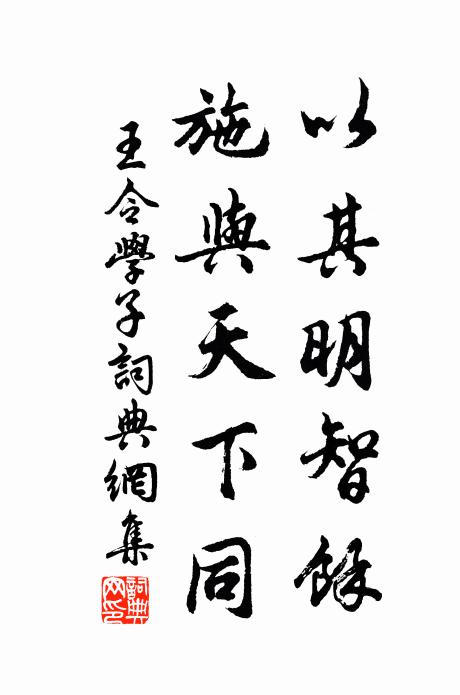 以其明智餘
施與天下同
王令學子詞典網集
詞典網印